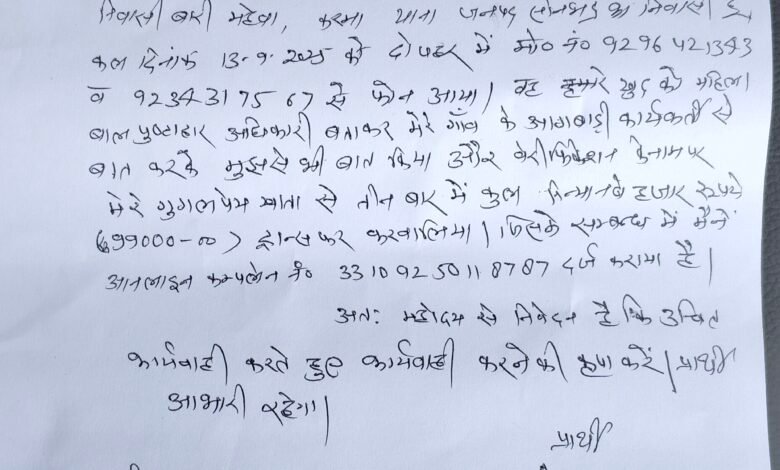 निवासी बारी महेवा, करमा थाना जनपद सोनभद्र का निवासी हूँ
कल दिनांक 13-9-2025 को दोपहर में मो० नं० 9296421343
व 9234317567 से फोन आया। वह हमारे खुद को महिला
बाल पुष्टाहार अधिकारी बताकर मेरे गाँव के आगबाड़ी कार्यकर्ती से
बात करके मुझसे भी बात किया और वेरीफिकेशन के नाम पर
मेरे गुगल पेय खाता से तीन बार में कुल निन्यानवे हजार रूपये
(99000-00) ट्रान्सफर करवा लिया। जिसके सम्बन्ध में मैंने
आनलाइन कम्पलेन नं० 33109250118787 दर्ज कराया है।
अतः महोदय से निवेदन है कि उचित
कार्यवाही करते हुए कार्यवाही करने की कृपा करें। प्रार्थी
आभारी रहेगा।
प्रार्थी